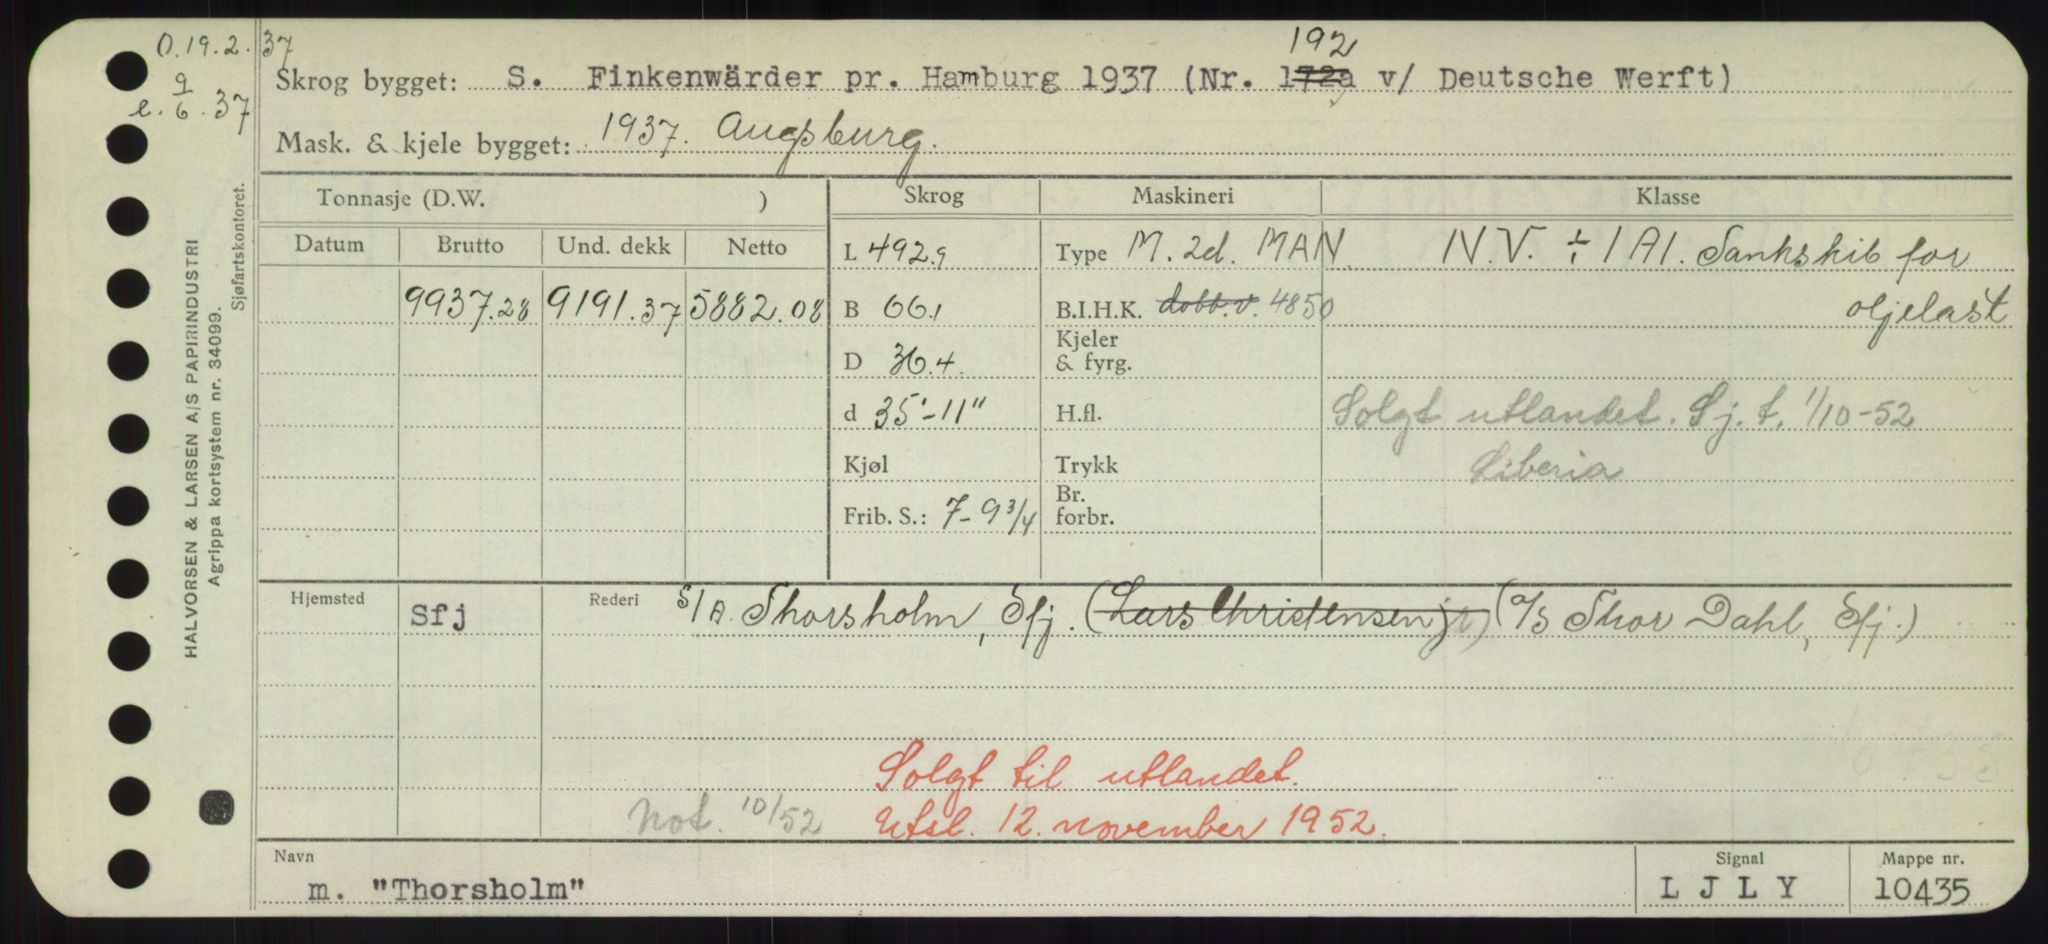 O. 19.2.37
9
e. 6. 37
192
Skrog bygget: S. Finkenwärder pr. Hamburg 1937 (Nr. 172a v/ Deutsche Werft)
Mask. & kjele bygget: 1937. Augsburg.
Tonnasje (D.W. ) Skrog Maskineri Klasse
Datum Brutto Und. dekk Netto L 492.9 Type M. 2d. MAN. N.V. ÷ 1A1. Tankskib for
9937.28 9191.37 5882.08 B 66.1 B.I.H.K. dobb.v. 4850 oljelast
D 36.4. Kjeler
& fyrg.
d 35'-11" H.fl. Solgt utlandet. Sj. t. 1/10-52
Kjøl Trykk Liberia
Frib. S.: 7-9 3/4 Br.
forbr.
Hjemsted Sfj Rederi S/A. Thorsholm, Sfj. (Lars Christensen jr) (A/S Thor Dahl, Sfj.)
Solgt til utlandet.
Not. 10/52 Utsl. 12. november 1952.
Navn Signal Mappe nr.
m. "Thorsholm" L J L Y 10435
HALVORSEN & LARSEN A/S PAPIRINDUSTRI
Agrippa kortsystem nr. 34099.
Sjøfartskontoret.